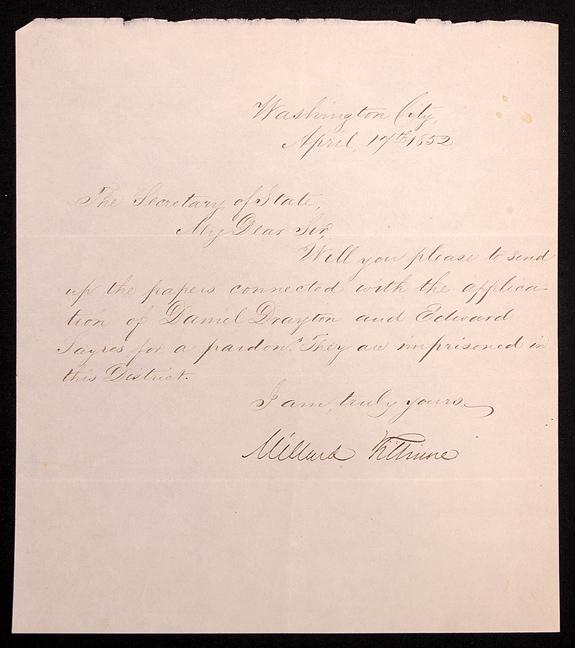 Washington City,
April, 17th 1852
The Secretary of State,
My Dear Sir,
Will you please to send
up the papers connected with the applica-
tion of Daniel Drayton and Edward
Sayres for a pardon? They are imprisoned in
this District.
I am, truly yours
Millard Fillmore